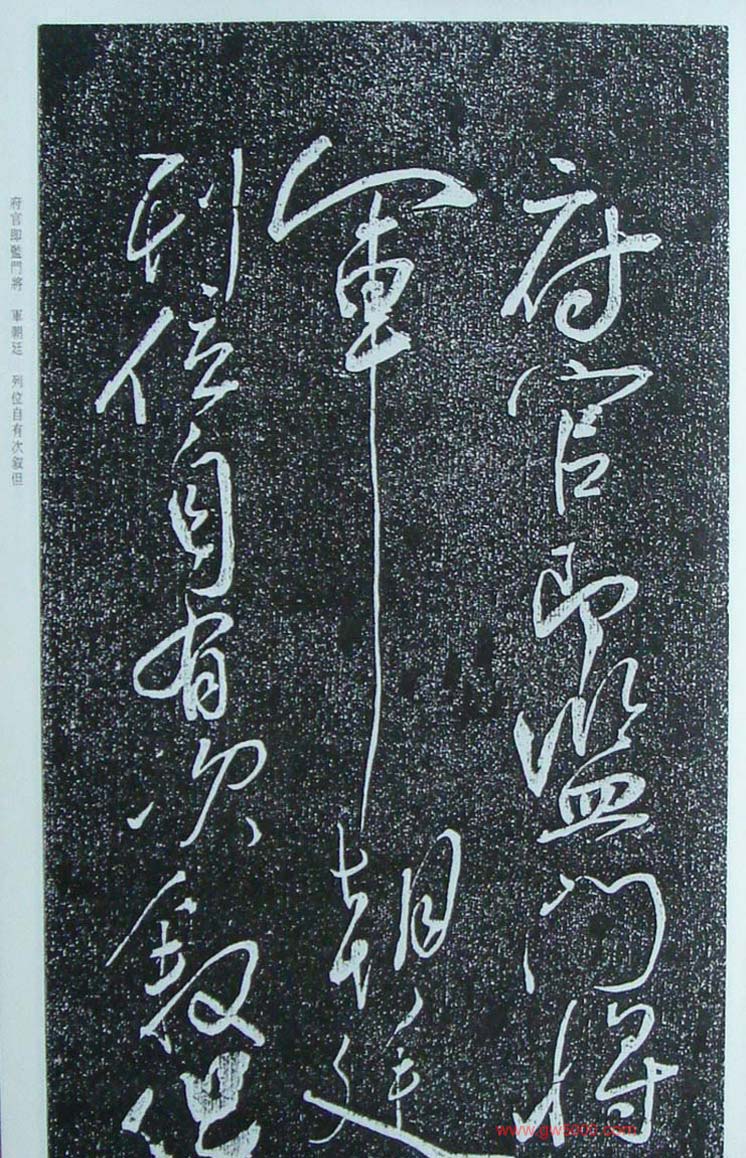 府官即監門將
軍朝廷
列位自有次叙但
府官即監門將　軍朝廷　列位自有次叙但
www.gw5000.com